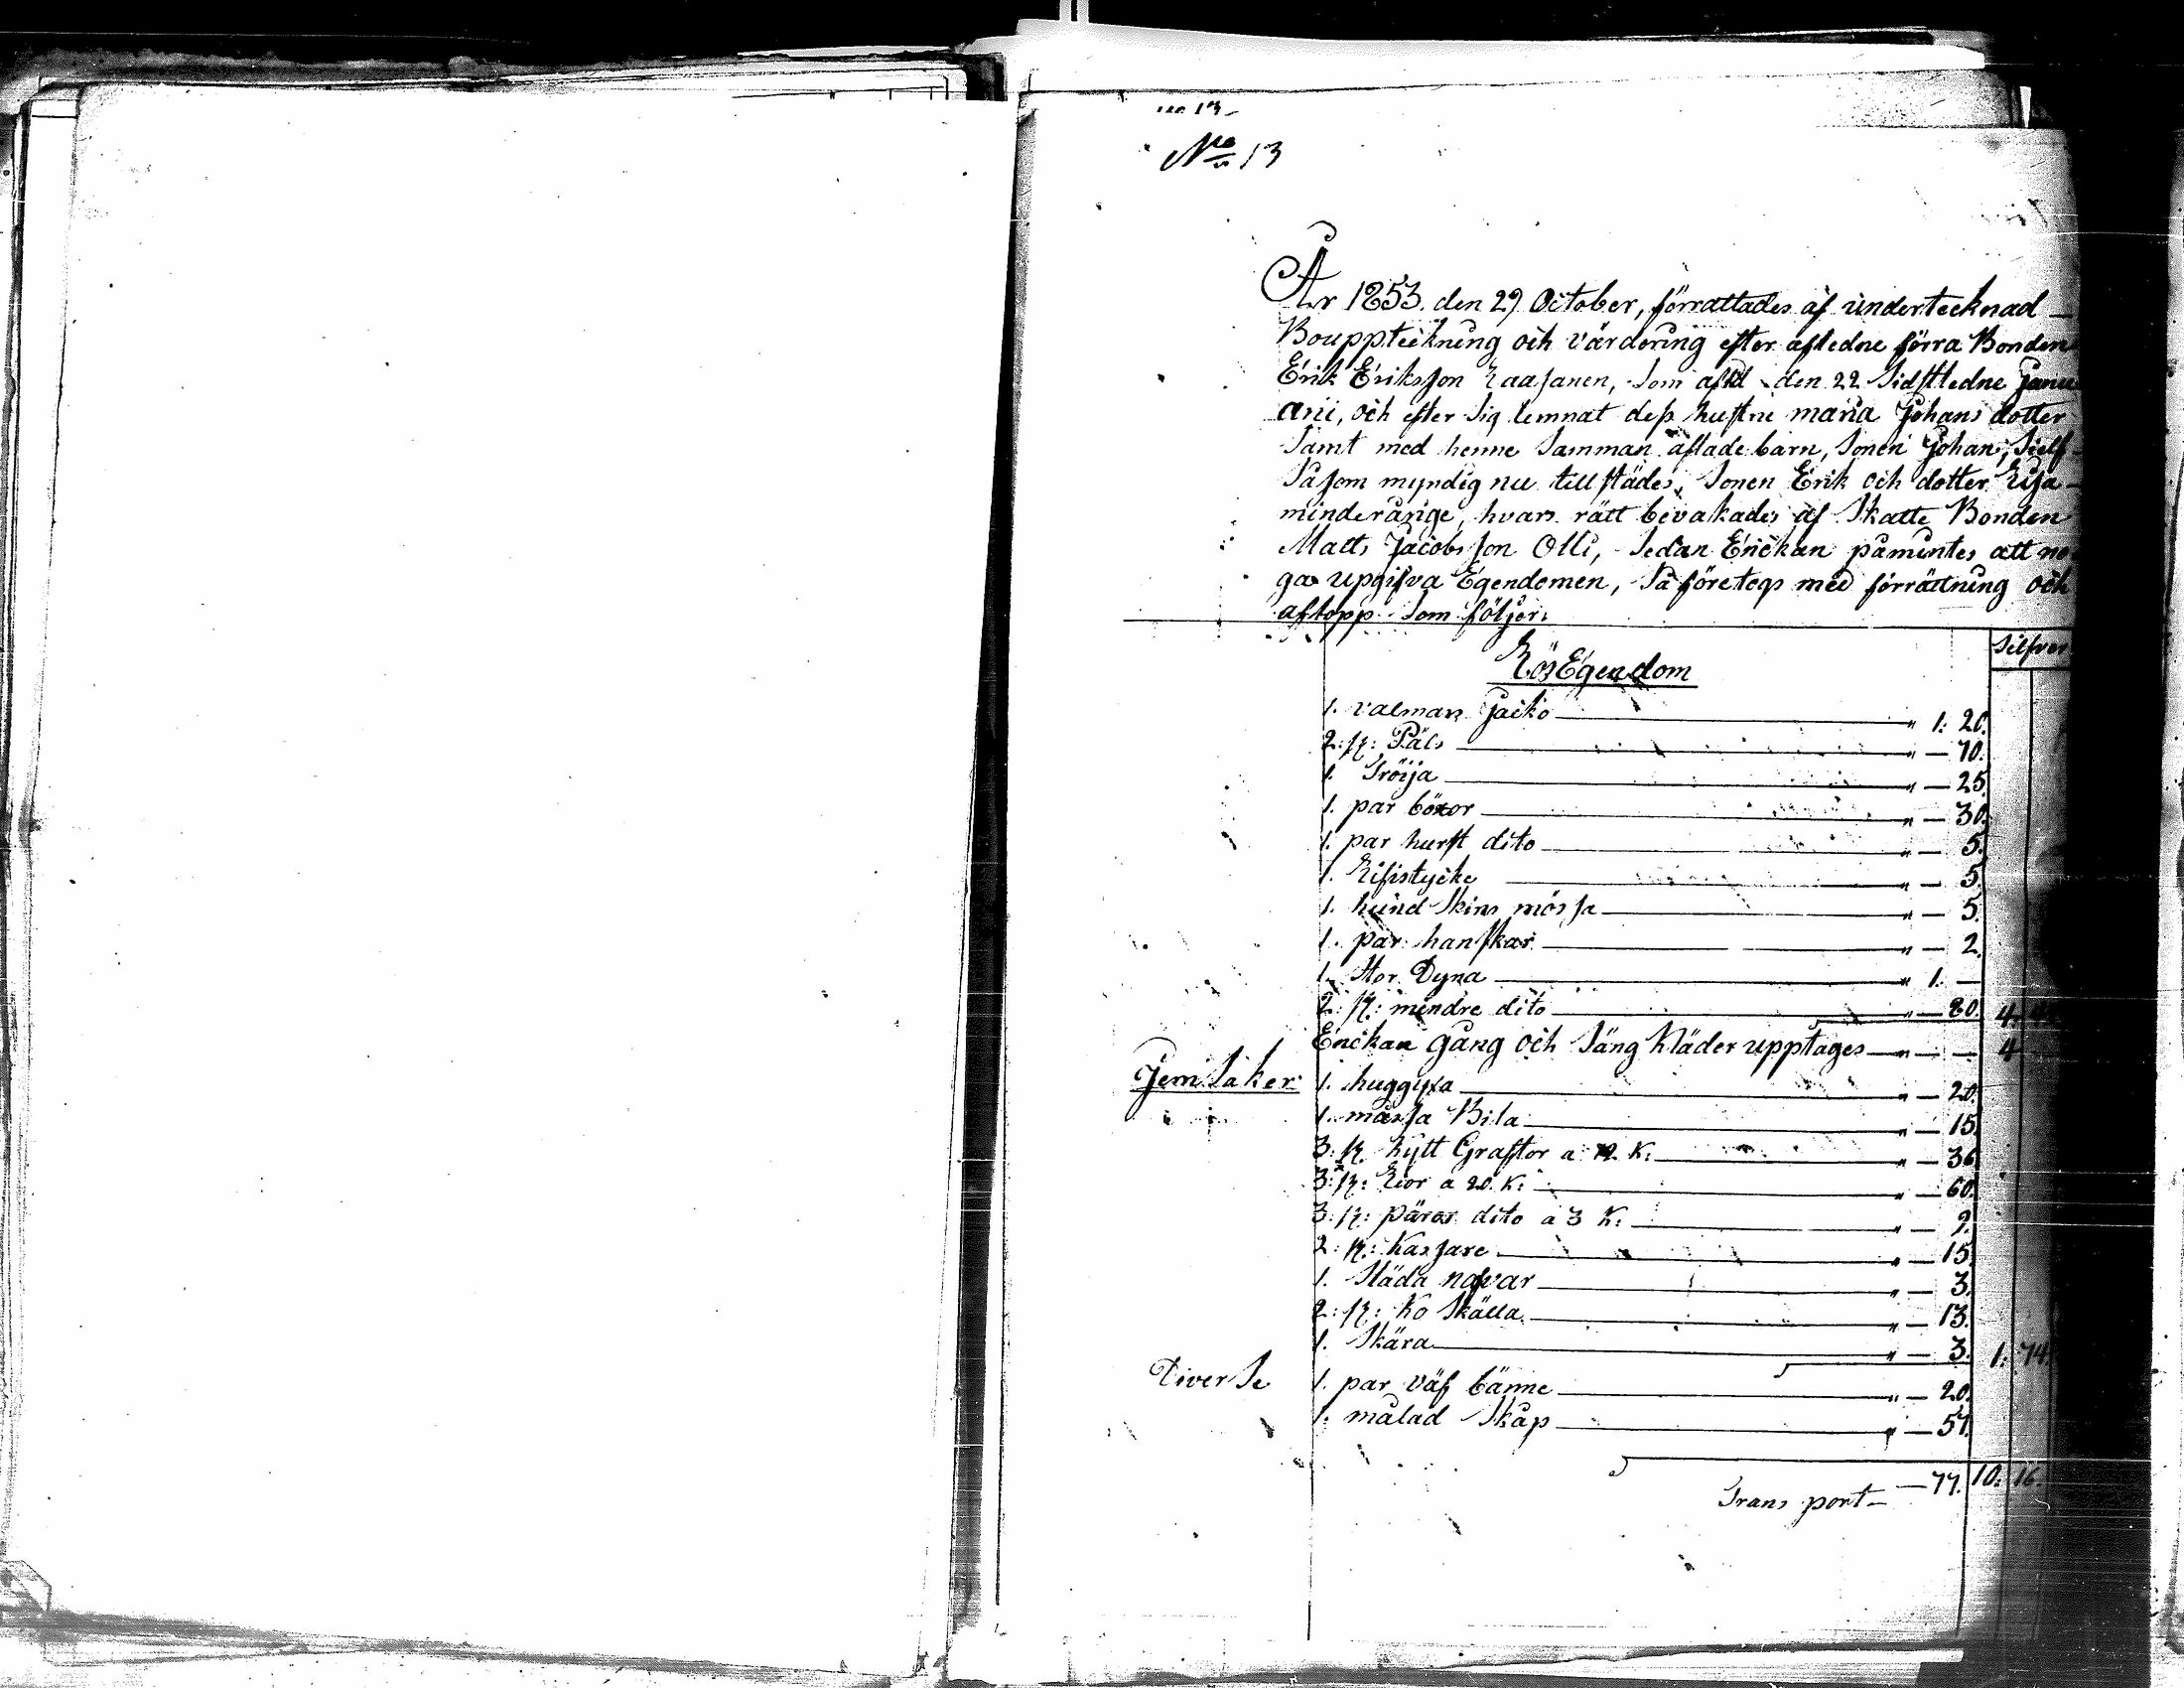 No 13
No 13
År 1853. den 29 October, förrattades af undertecknad
Bouppteckning och värdering efter afledne förra Bonden
Erik Eriksson Laasanen, som afled den 22 Sidstledne Janu
arii, och efter sig lemnat dess hustru maria Johans dotter
Samt med henne Samman aflade barn, Sonen Johan, Sielf
Såsom myndig nu till städes, Sonen Erik och dotter Lisa
minderårige, hvars rätt bevakades af Skatte Bonden
Matts Jacobsson Olli, Sedan Enckan påmintes att no
ga uppgifva Egendomen, Så företogs med förrättning och
aftopp som följer:
Silfver
Lös Egendom
1. valmars Jacko " 1: 20.
2: st: Päls " — 70.
1. Tröija " — 25.
1. par böxor " — 30.
1. par hurst dito " — 5.
1. Lifstycke " — 5.
1. hund Skins mössa " — 5.
1. par hanskar " — 2.
1. Stor Dyna " 1. —
2: st: mindre dito " — 80. 4:
Enckan Gang och Säng Kläder upptages " — — 4
Jern Saker 1. huggyxa " — 20.
1. massa Bila " — 15.
3: st. Kytt Graftor a 12. K: " — 36
3: st: Lior a 20. K: " — 60.
3: st: päror dito a 3 K: " — 9.
2: st: Kassare " — 15.
1. Städa nafvar " — 3.
2: st: Ko Skälla " — 13.
1. Skära " — 3. 1: 74.
Diverse 1. par väf bänne " — 20.
1. målad Skåp " — 57.
Transport — 77. 10: 16.